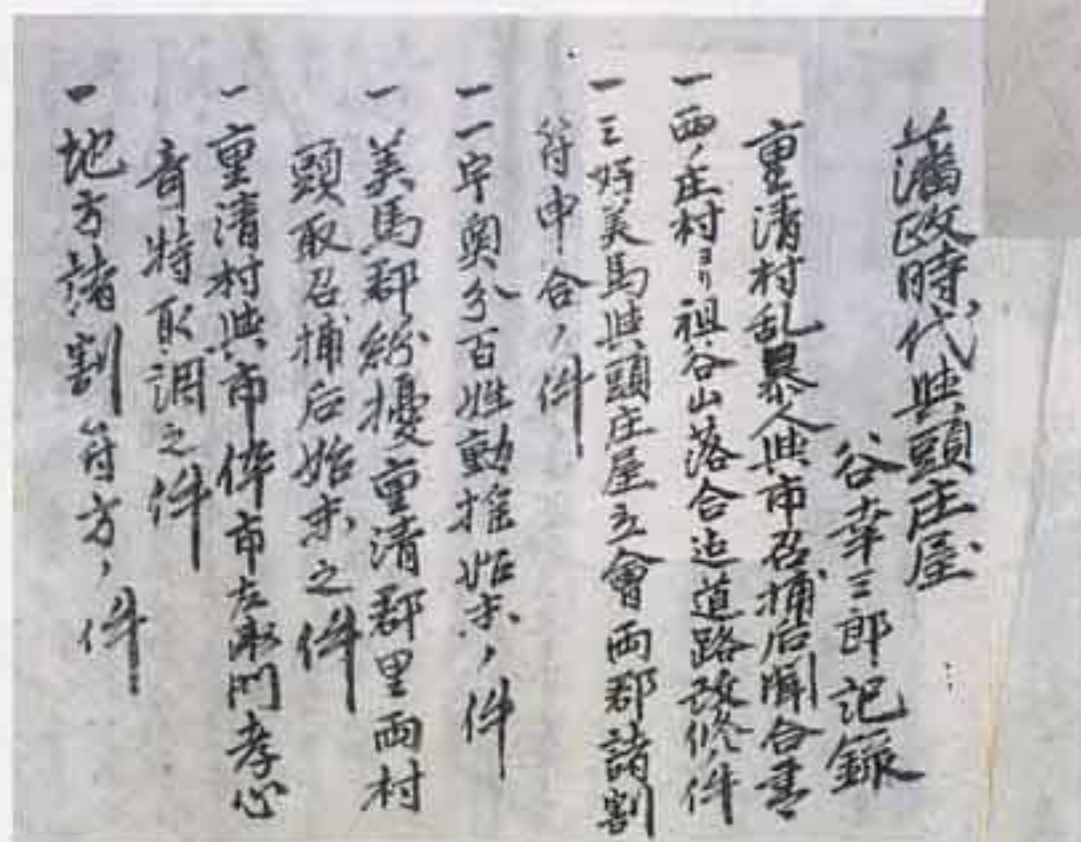 藩政時代與頭庄屋
谷幸三郎記録
重清村乱暴人與市召捕后聞合書
一西ノ庄村ヨリ祖谷山落合迄道路改修ノ件
一三好美馬與頭庄屋立會両郡諸割
符申合ノ件
一一宇奥分百姓動揺始末ノ件
一美馬郡紛擾重清郡里両村
頭取召捕后始末之件
一重清村與市倅市左衛門孝心
奇特取調之件
一地方諸割符方ノ件